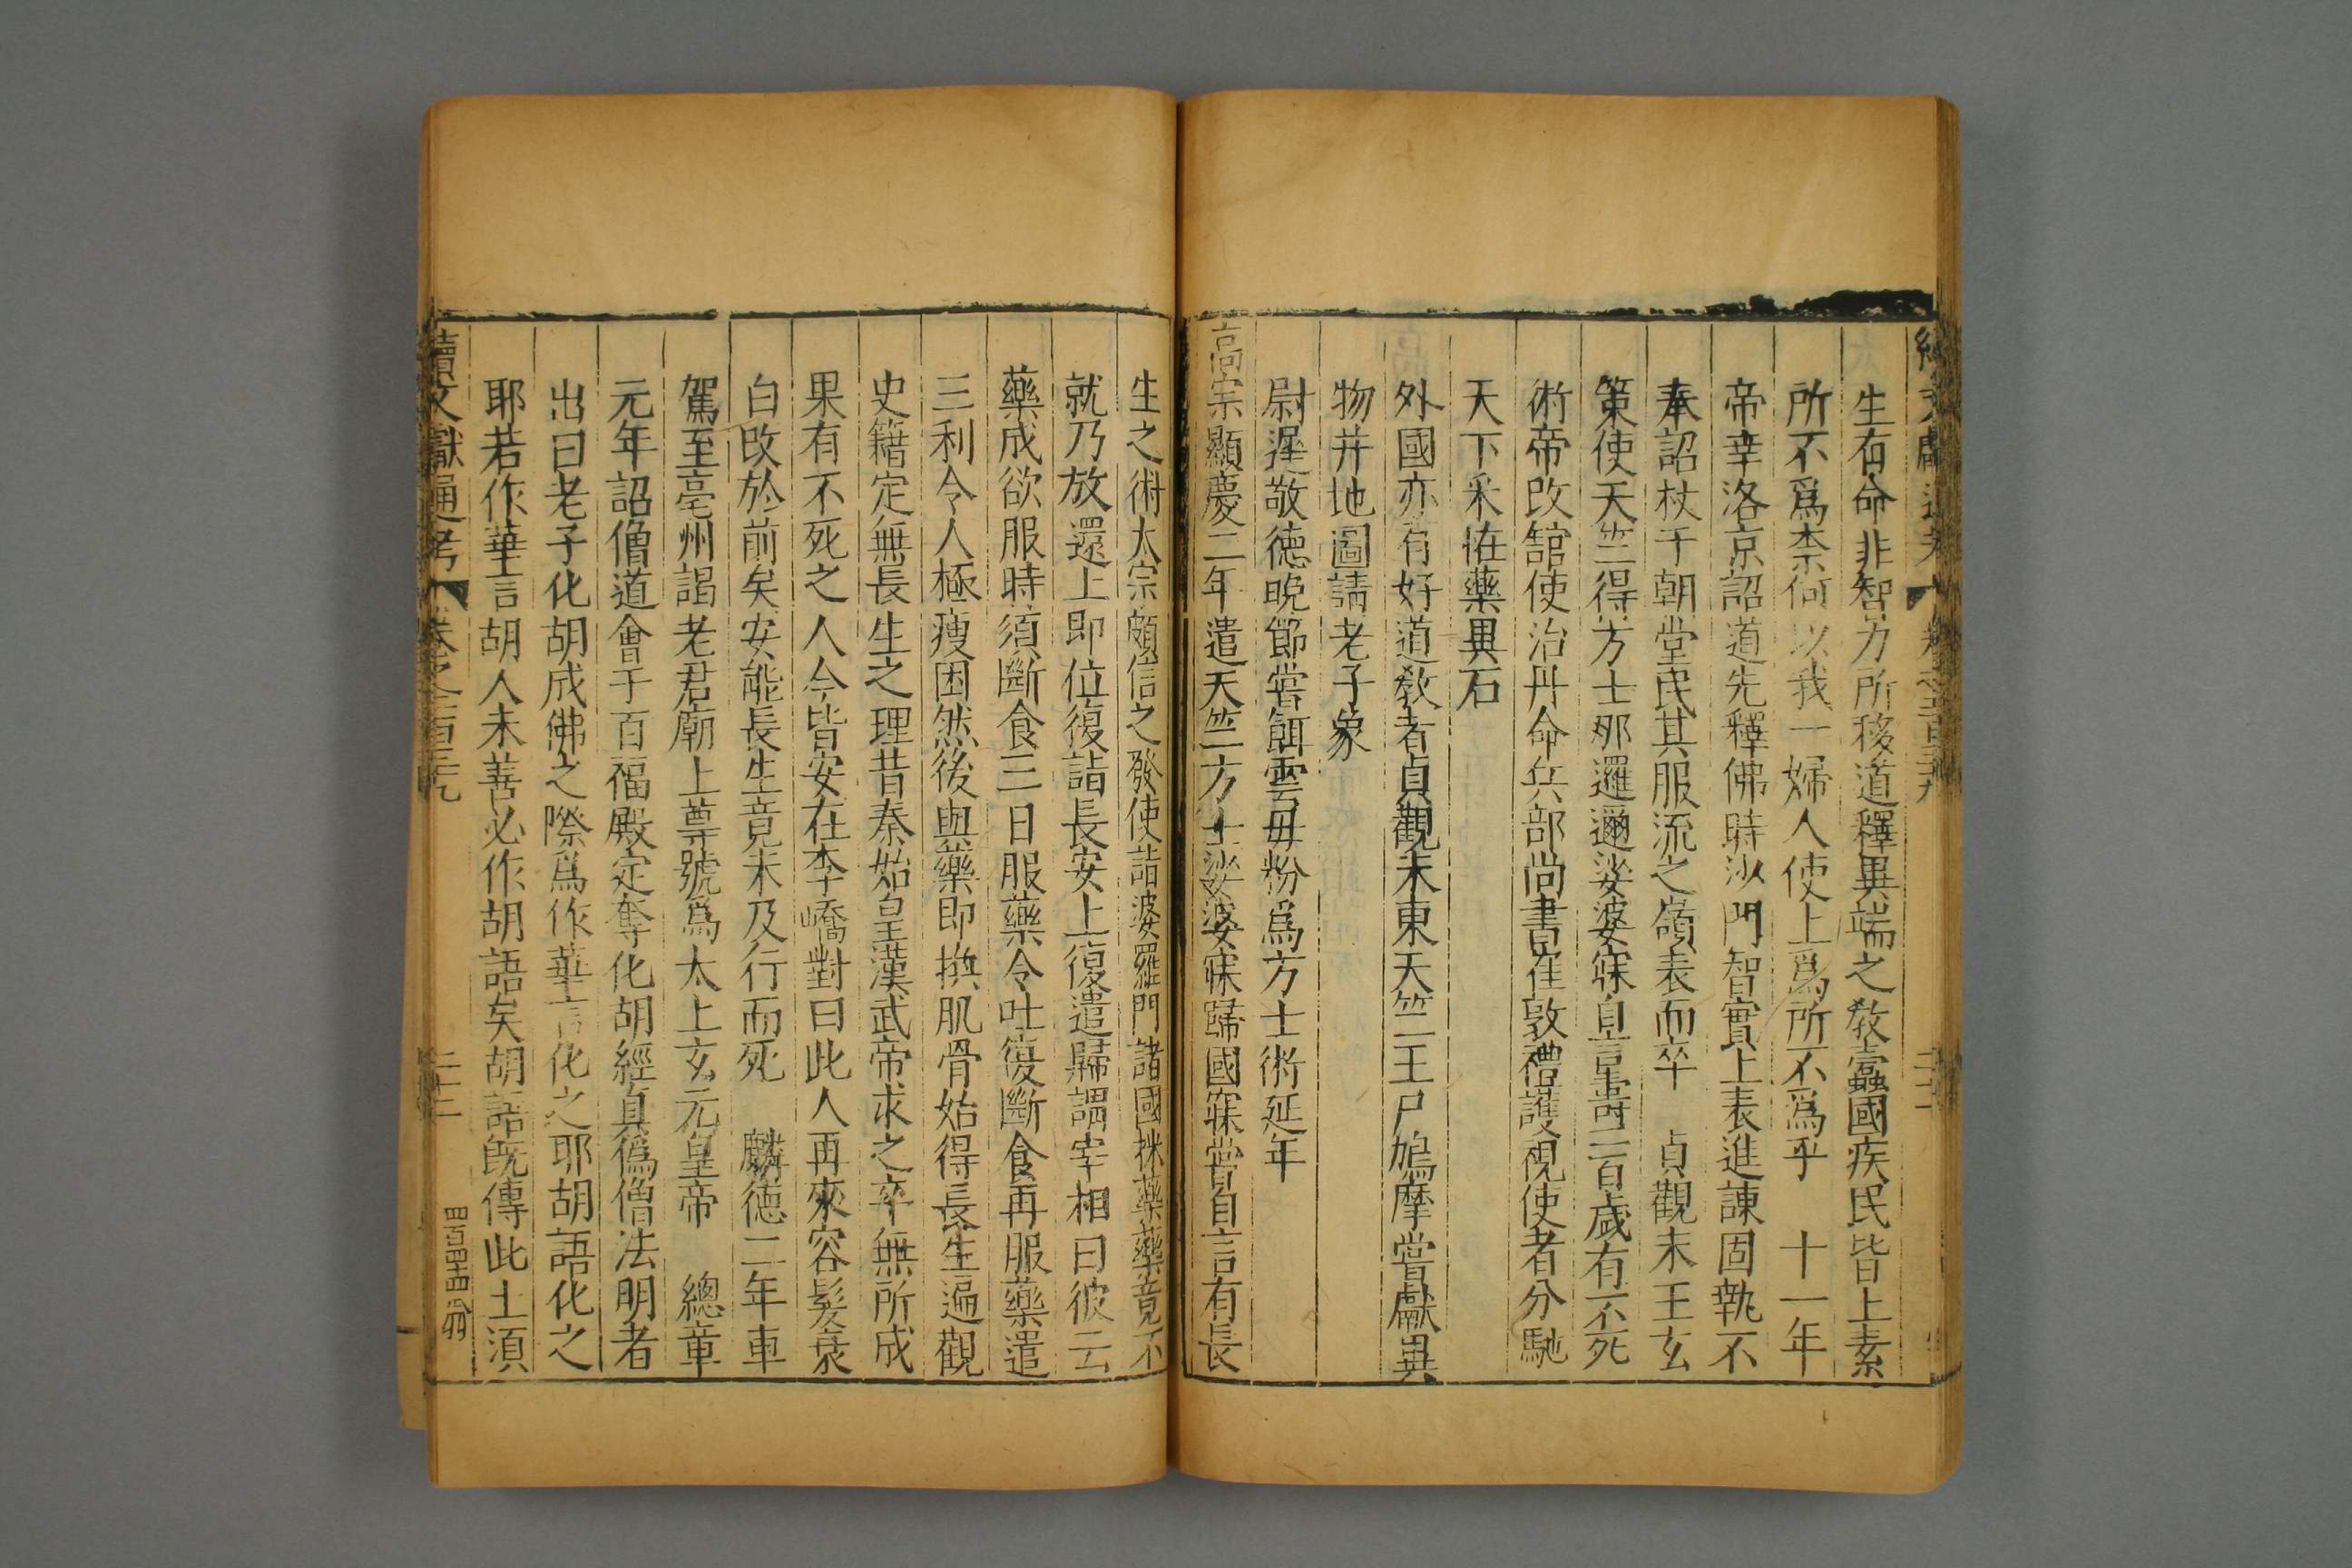 生有命非智力所移道釋異端之教蠹國疾民皆上素
所不爲柰何以我一婦人使上爲所不爲乎　十一年
帝幸洛京詔道先釋佛時沙門智實上表進諫固執不
奉詔杖于朝堂民其服流之嶺表而卒　貞觀末王玄
策使天竺得方士那邏邇娑婆寐自言壽二百歲有不死
術帝改舘使治丹命兵部尚書崔敦禮護視使者分馳
天下采恠藥異石
外國亦有好道教者貞觀末東天竺王尸鳩摩嘗獻異
物并地圖請老子象
尉遲敬德晚節嘗餌雲母粉爲方士術延年
高宗顯慶二年遣天竺方士娑婆寐歸國寐嘗自言有長
生之術太宗頗信之發使詣婆羅門諸國採藥藥竟不
就乃放還上即位復詣長安上復遣歸謂宰相曰彼云
藥成欲服時須斷食三日服藥令吐復斷食再服藥遣
三利令人極瘦困然後與藥即換肌骨始得長生遍觀
史籍定無長生之理昔秦始皇漢武帝求之卒無所成
果有不死之人今皆安在李嶠對曰此人再來容髮衰
白改於前矣安能長生竟未及行而死　麟德二年車
駕至亳州謁老君廟上尊號爲太上玄元皇帝　總章
元年詔僧道會于百福殿定奪化胡經真僞僧法明者
出曰老子化胡成佛之際爲作華言化之耶胡語化之
耶若作華言胡人未善必作胡語矣胡語旣傳此土湏
續文獻通考　卷之二百三九
二十二